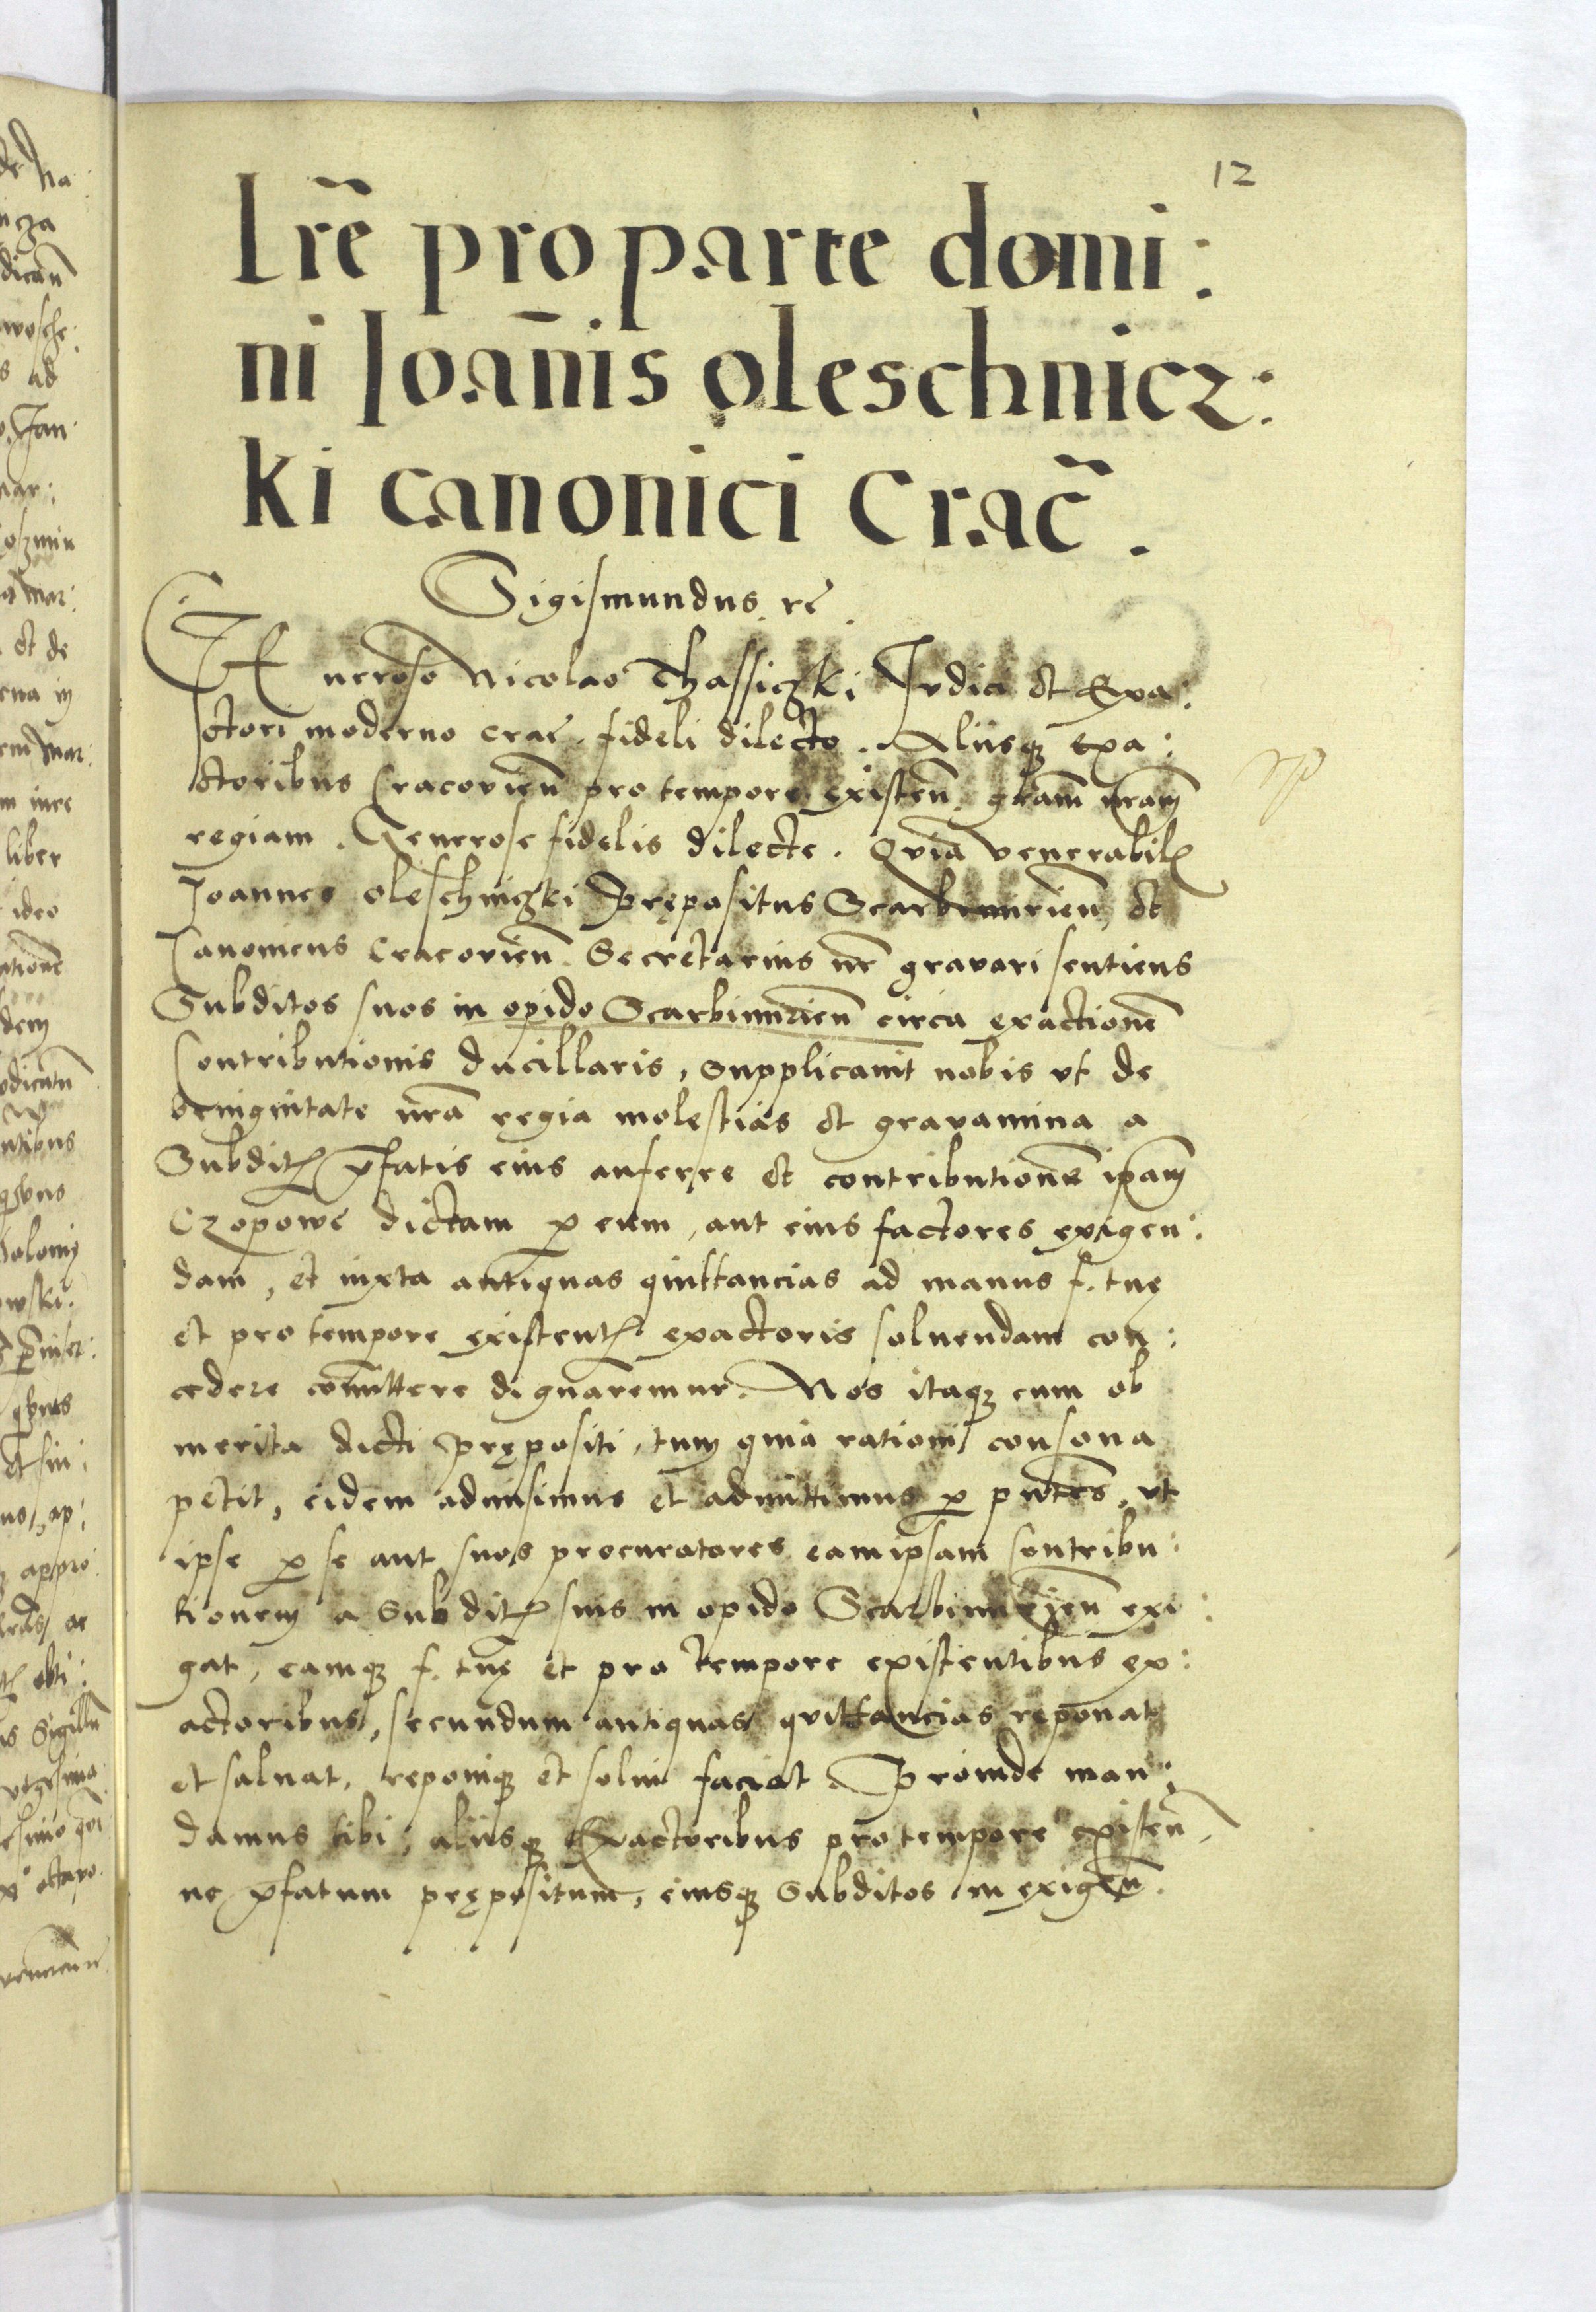 12
Lrē pro parte domi:
ni Ioan̄is oleschnicz:
ki canonici Crac̄.
Sigismundus rē.
Generoso Nicolao Thassiczki Iudici et Exa:
ctori moderno crac̄. fideli dilecto. Aliisq; exa:
ctoribus Cracovien̄ pro tempore existen̄ grām nrām
regiam. Generose fidelis dilecte. Qvia venerabil
Ioannes oleschniczki Prępositus Scarbimirien̄ et
Canonicus Cracovien̄. Secretarius nr̄ gravari sentiens
Subditos suos in opido Scarbimirien̄ circa exactionē
Contributionis ducillaris, supplicavit nobis vt de
benignitate nrā regia molestias et gravamina a
Subdit p̄fatis eius auferre et contributionē ipam̄
Czopowe dictam p eum, aut eius factores exigen:
dam, et iuxta antiquas quittancias ad manus f. tuę
et pro tempore existent exactoris soluendam con:
cedere com̄ittere dignaremur. Nos itaq; cum ob
merita dicti Prępositi, tum quia rationi consona
petit, eidem admisimus et admittimus p pn̄tes, vt
ipse p se aut suos procuratores eamipsam Contribu:
tionem a Subdit suis in opido Scarbimirien̄ exi:
gat, eamq; f. tuę et pro tempore existentibus ex:
actoribus, secundum antiquas quittancias reponat
et saluat, reponiq; et solui faciat. Proinde man:
damus tibi, aliisq; Exactoribus pro tempore existen̄,
ne p̄fatum prępositum, eiusq; Subditos in exigen̄.